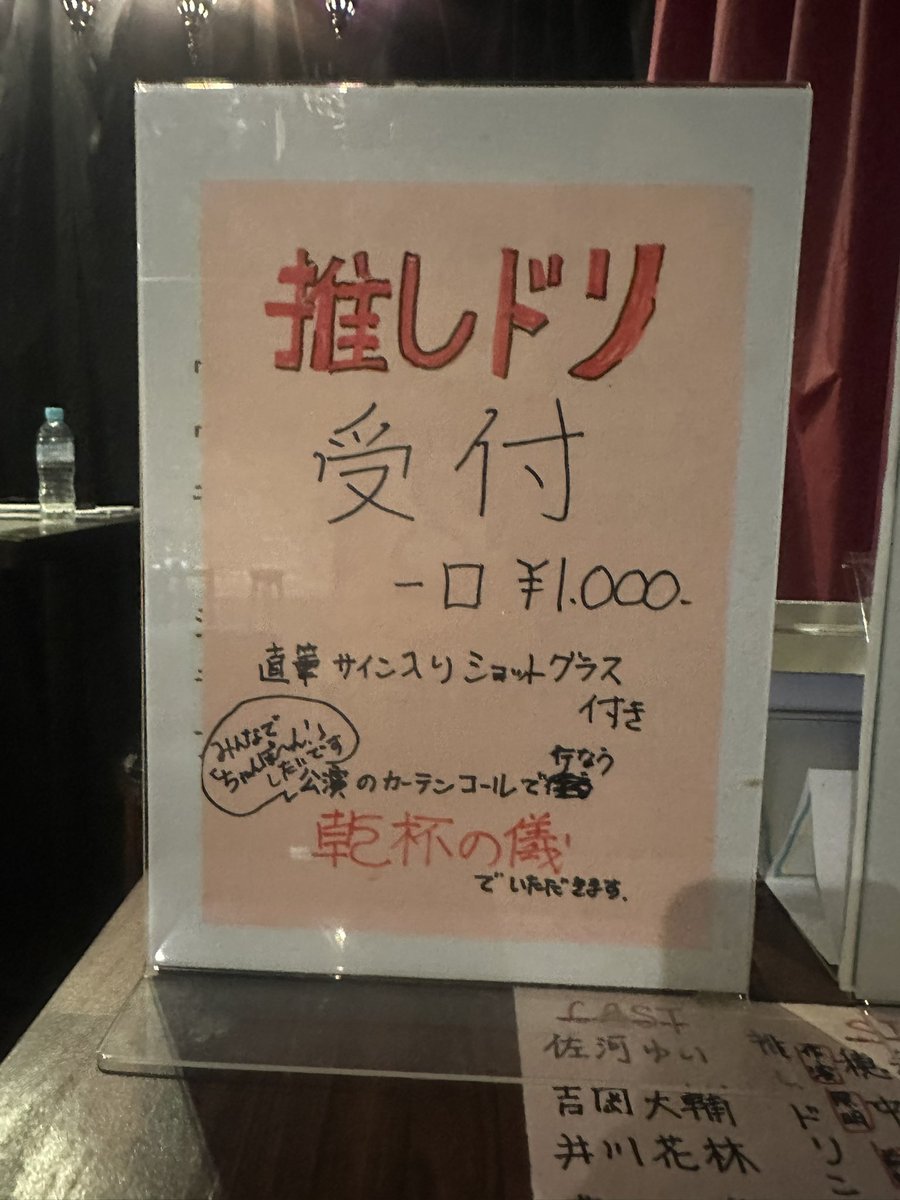 推しドリ
受付
一口 ¥1.000.
直筆サイン入りショットグラス
付き
みんなで
「ちゃんぽ〜ん!」
しだいです
公演のカーテンコールで行なう
乾杯の儀
でいただきます。
CAST
佐河ゆい
吉岡大輔
井川花林
推しドリン